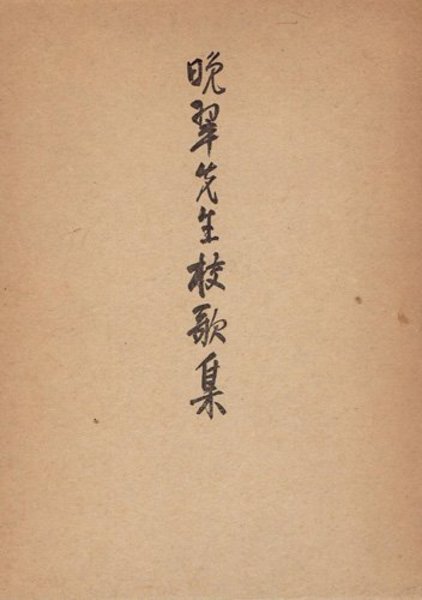 晩翠先生校歌集